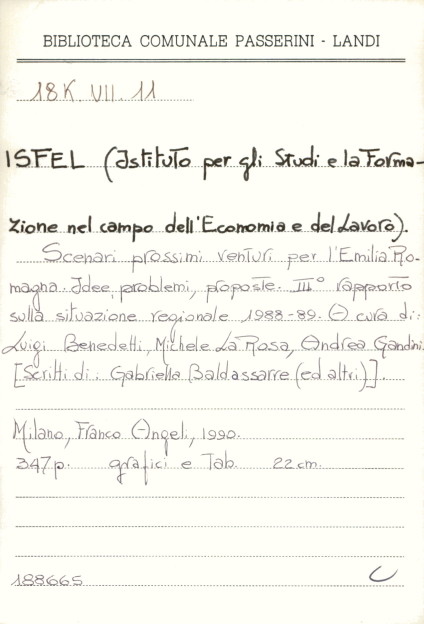 BIBLIOTECA COMUNALE PASSERINI - LANDI
18K. VII. 11
ISFEL (Istituto per gli Studi e la Forma-
zione nel campo dell'Economia e del Lavoro).
Scenari prossimi venturi per l'Emilia Ro-
magna. Idee, problemi, proposte. III° rapporto
sulla situazione regionale 1988-89. A cura di:
Luigi Benedetti, Michele La Rosa, Andrea Gandini.
[Scritti di: Gabriella Baldassarre (ed altri)].
Milano, Franco Angeli, 1990.
347 p. grafici e Tab. 22 cm.
188665